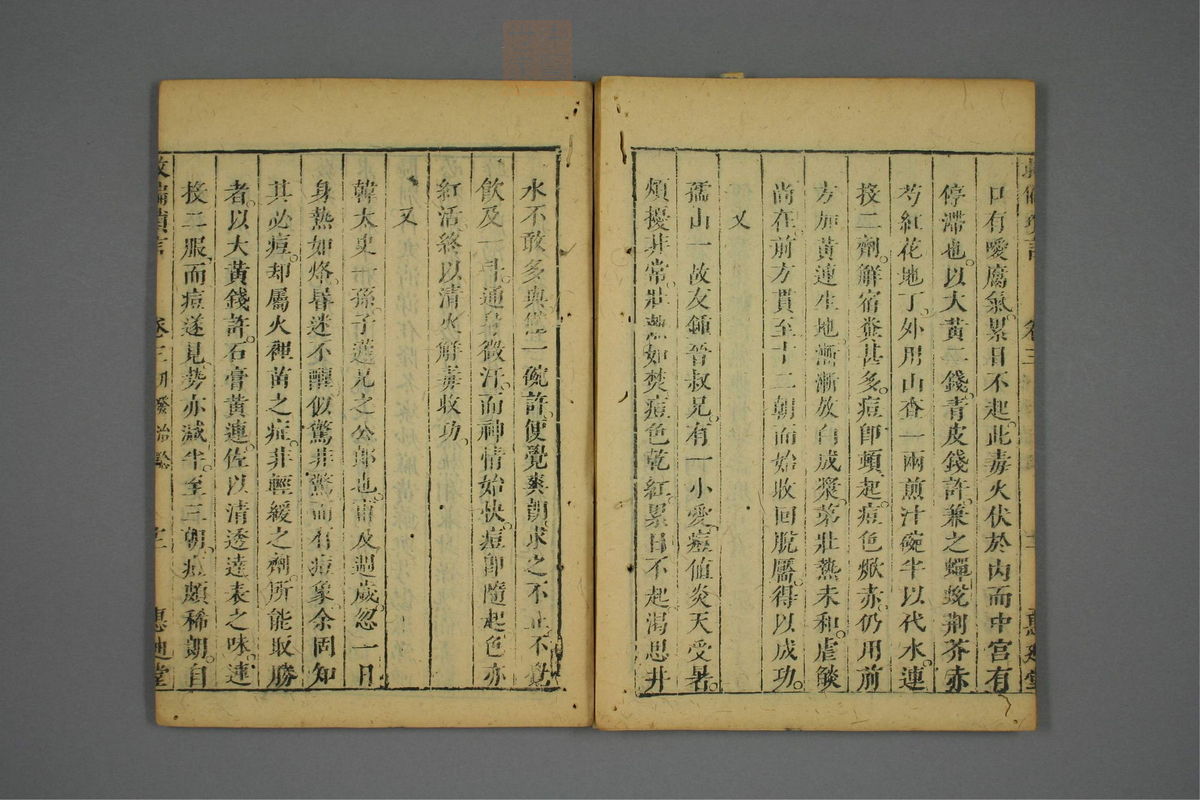 口有噯腐氣累日不起此毒火伏於內而中宮有
停滯也以大黃二錢青皮錢許兼之蟬蛻荆芥赤
芍紅花地丁外用山查一兩煎汁碗半以代水連
投二劑解宿糞甚多痘卽頓起痘色焮赤仍用前
方加黃連生地漸漸放白成漿第壯熱未和虐燄
尚在前方貫至十二朝而始收回脫靨得以成功
又
孺山一故友鍾晉叔兄有一小愛痘值炎天受暑
煩擾非常壯熱如焚痘色乾紅累日不起渴思井
水不敢多與僅一碗許便覺爽朗求之不止不覺
飲及一斗通身微汗而神情始快痘卽隨起色亦
紅活終以清火解毒收功
又
韓太史 孫子蘧兄之公郎也甫及週歲忽一日
身熱如烙昏迷不醒似驚非驚而有痘象余固知
其必痘却屬火裡苗之症非輕緩之劑所能取勝
者以大黃錢許石膏黃連佐以清透達表之味連
投二服而痘遂見勢亦減半至三朝痘頗稀朗自
卷三
惠迪堂